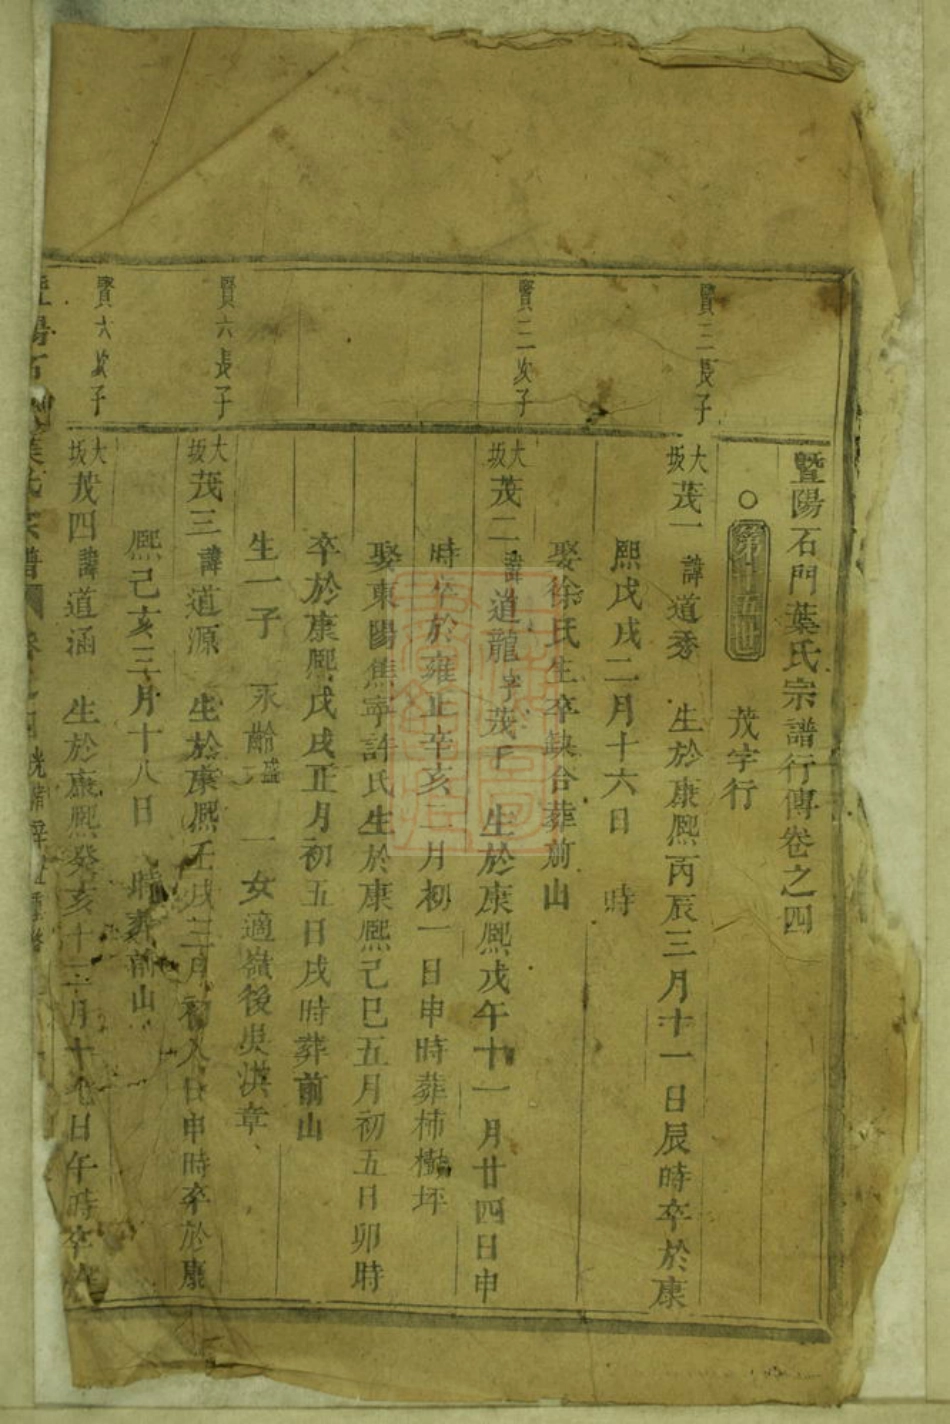 暨陽石門葉氏宗譜行傳卷之四
○ 第十五世 茂字行
賢三長子
大坂茂一 諱道秀 生於康熙丙辰三月十一日辰時卒於康
熙戊戌二月十六日 時
娶徐氏生卒缺合葬前山
賢二次子
大坂茂二 諱道龍字茂 生於康熙戊午十一月廿四日申
時卒於雍正辛亥二月初一日申時葬柿樹坪
娶東陽焦寧許氏生於康熙己巳五月初五日卯時
卒於康熙戊戌正月初五日戌時葬前山
生一子 永齡 一女適嶽後吳洪章
賢六長子
大坂茂三 諱道源 生於康熙壬戌三月初八日申時卒於康
熙己亥三月十八日 時葬前山
賢六次子
大坂茂四 諱道涵 生於康熙癸亥十二月十九日午時卒於
暨陽石門葉氏宗譜 卷之四